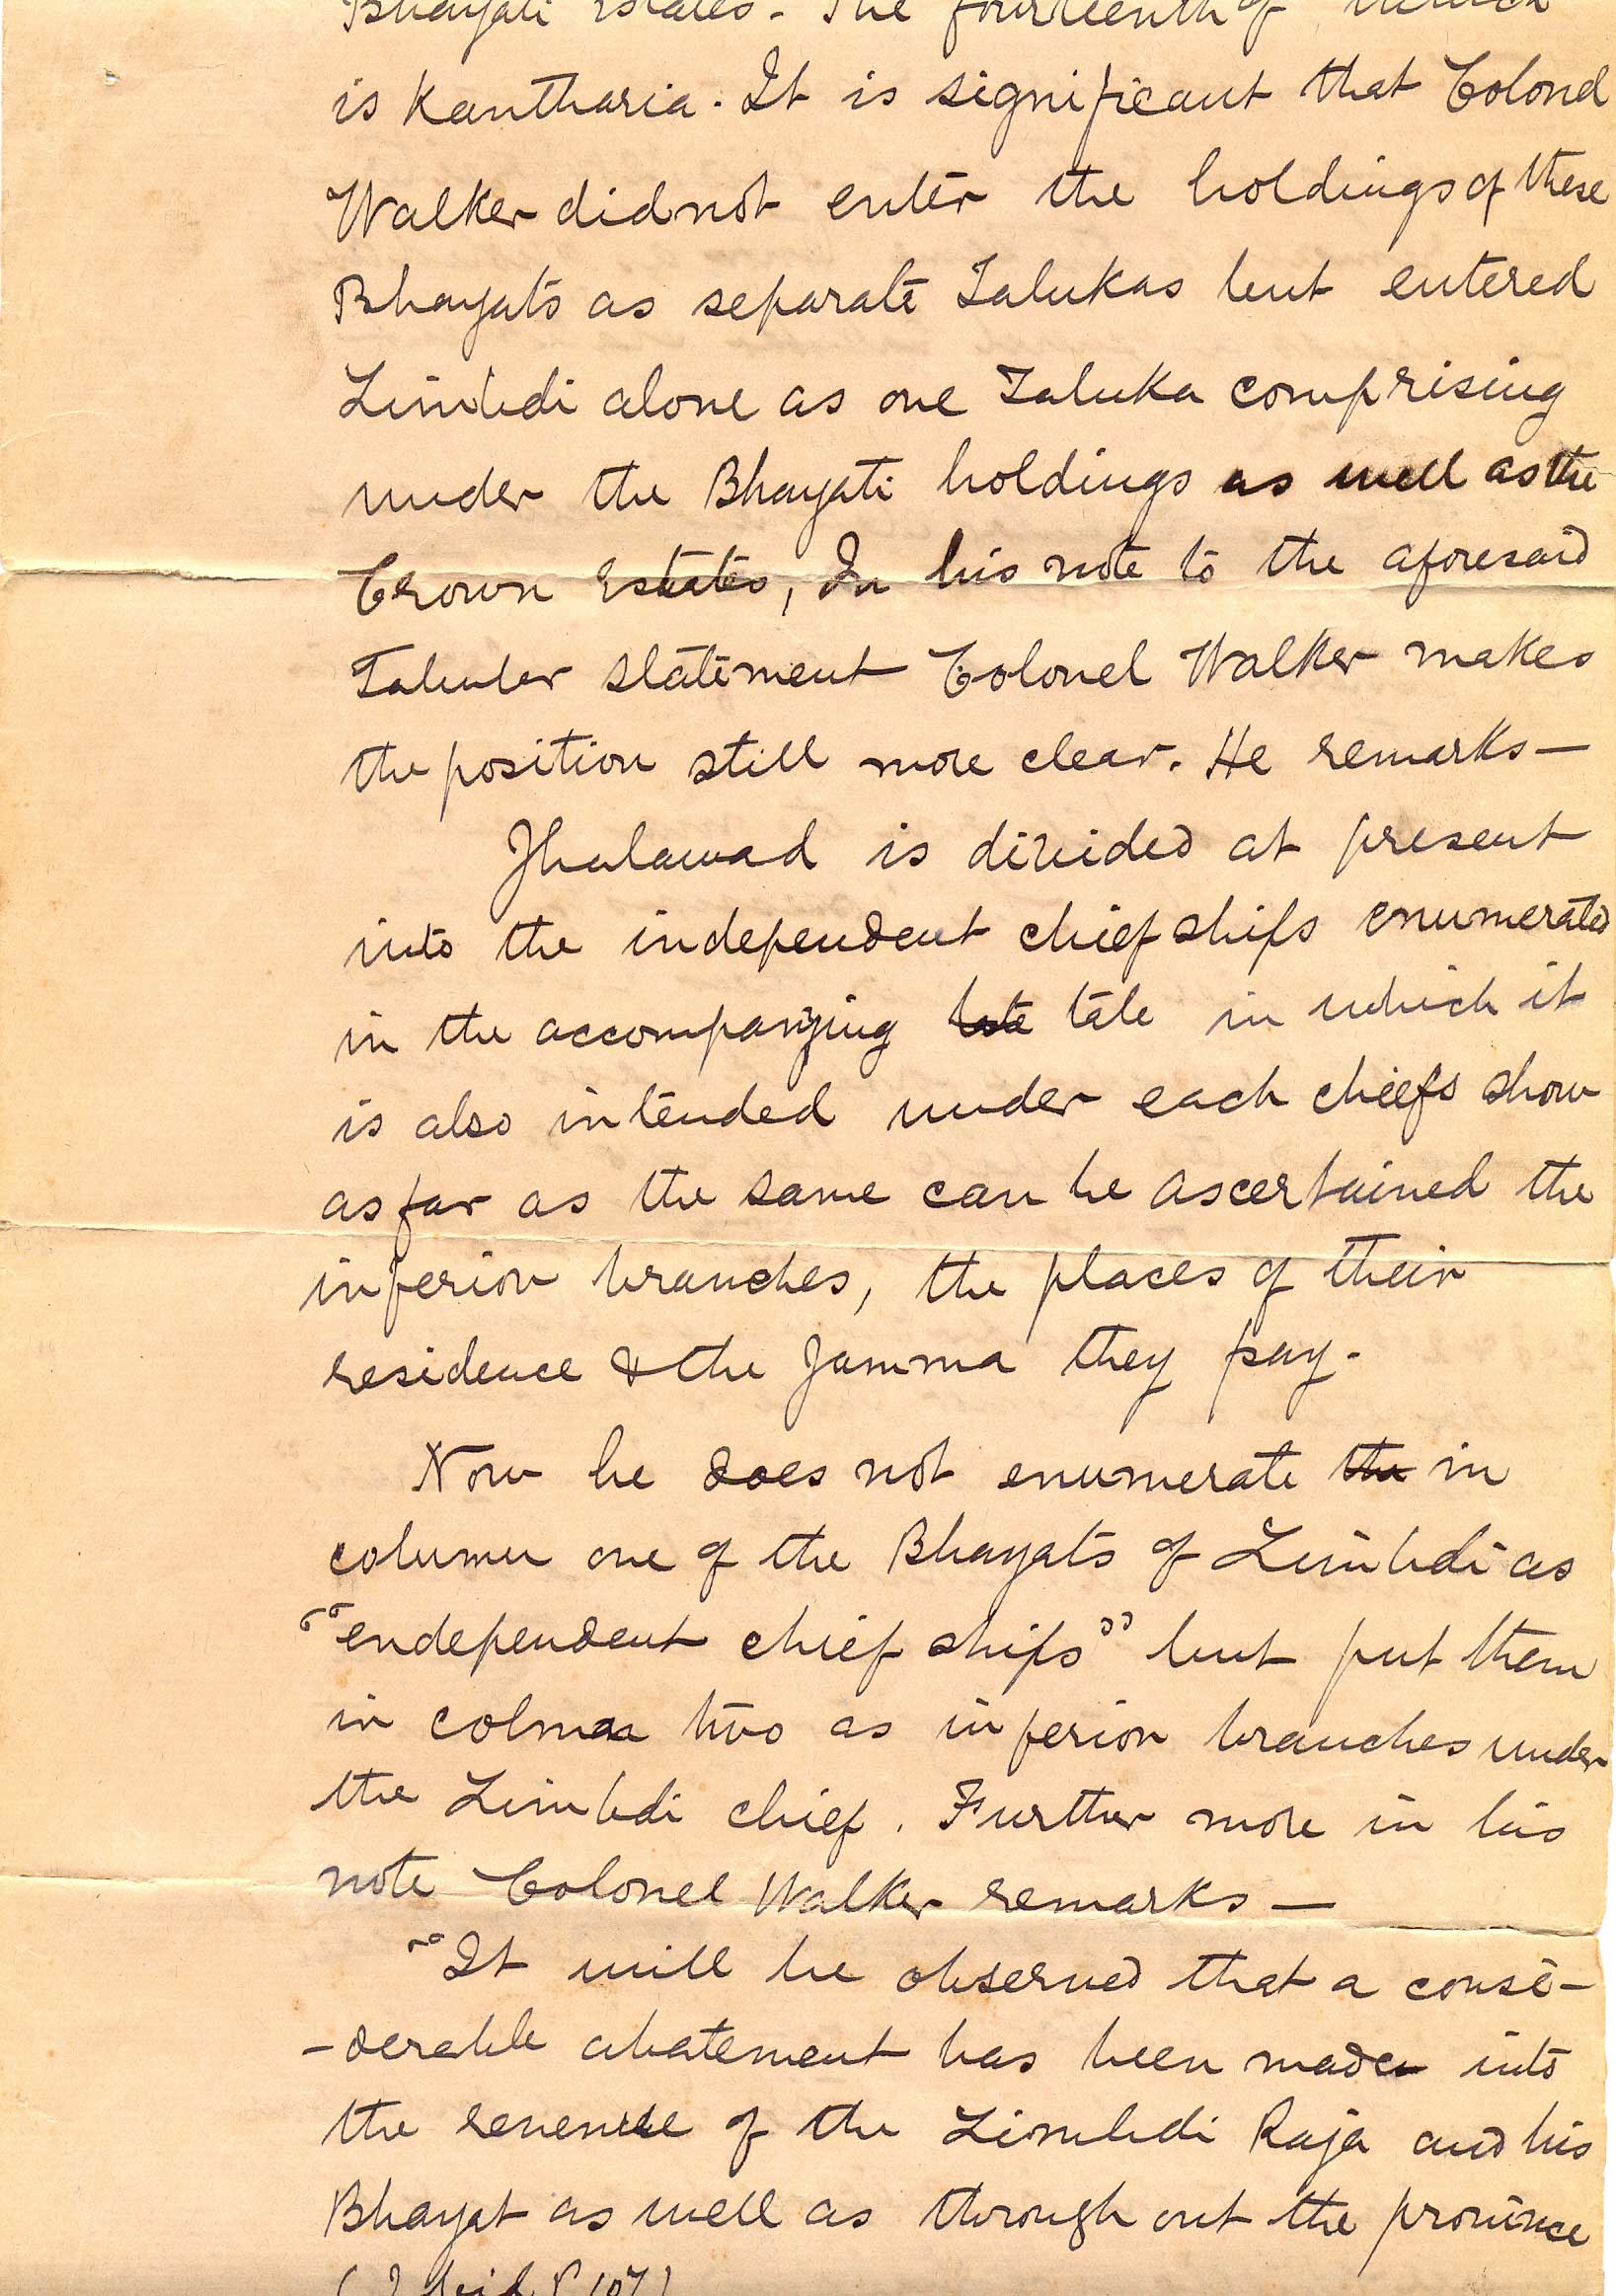 Bhayati Estates. The fourteenth of which
is Kantharia. It is significant that Colonel
Walker did not enter the holdings of these
Bhayats as separate Talukas but entered
Limbdi alone as one Taluka comprising
under the Bhayati holdings as well as the
Crown Estates, In his note to the aforesaid
Tabular statement Colonel Walker makes
the position still more clear. He remarks—
Jhalawad is divided at present
into the independent chief ships enumerated
in the accompanying table in which it
is also intended under each chiefs show
as far as the same can be ascertained the
inferior branches, the places of their
residence & the Jamma they pay.
Now he does not enumerate the in
column one of the Bhayats of Limbdi as
"endependent chief ships" but put them
in two as inferior branches under
the Limbdi chief. Further more in his
note Colonel Walker remarks—
"It will be observed that a consi-
-derable abatement has been made into
the revenue of the Limbdi Raja and his
Bhayat as well as through out the province